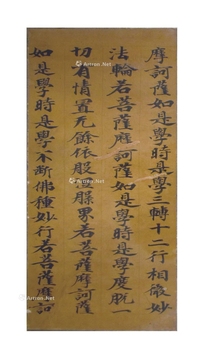 摩訶薩如是學時是學三轉十二行相微妙
法輪若菩薩摩訶薩如是學時是學度脫一
切有情置无餘依般界若菩薩摩訶薩
如是學時是學不斷佛種妙行若菩薩摩訶
Artron.Net